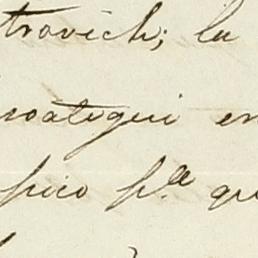 trovich; la
roategui en
pico p.le qu